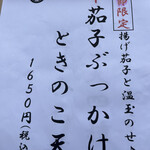 限定
揚げ茄子と温玉のせ
茄子ぶっかけ
ときのこ天
1650円(税込